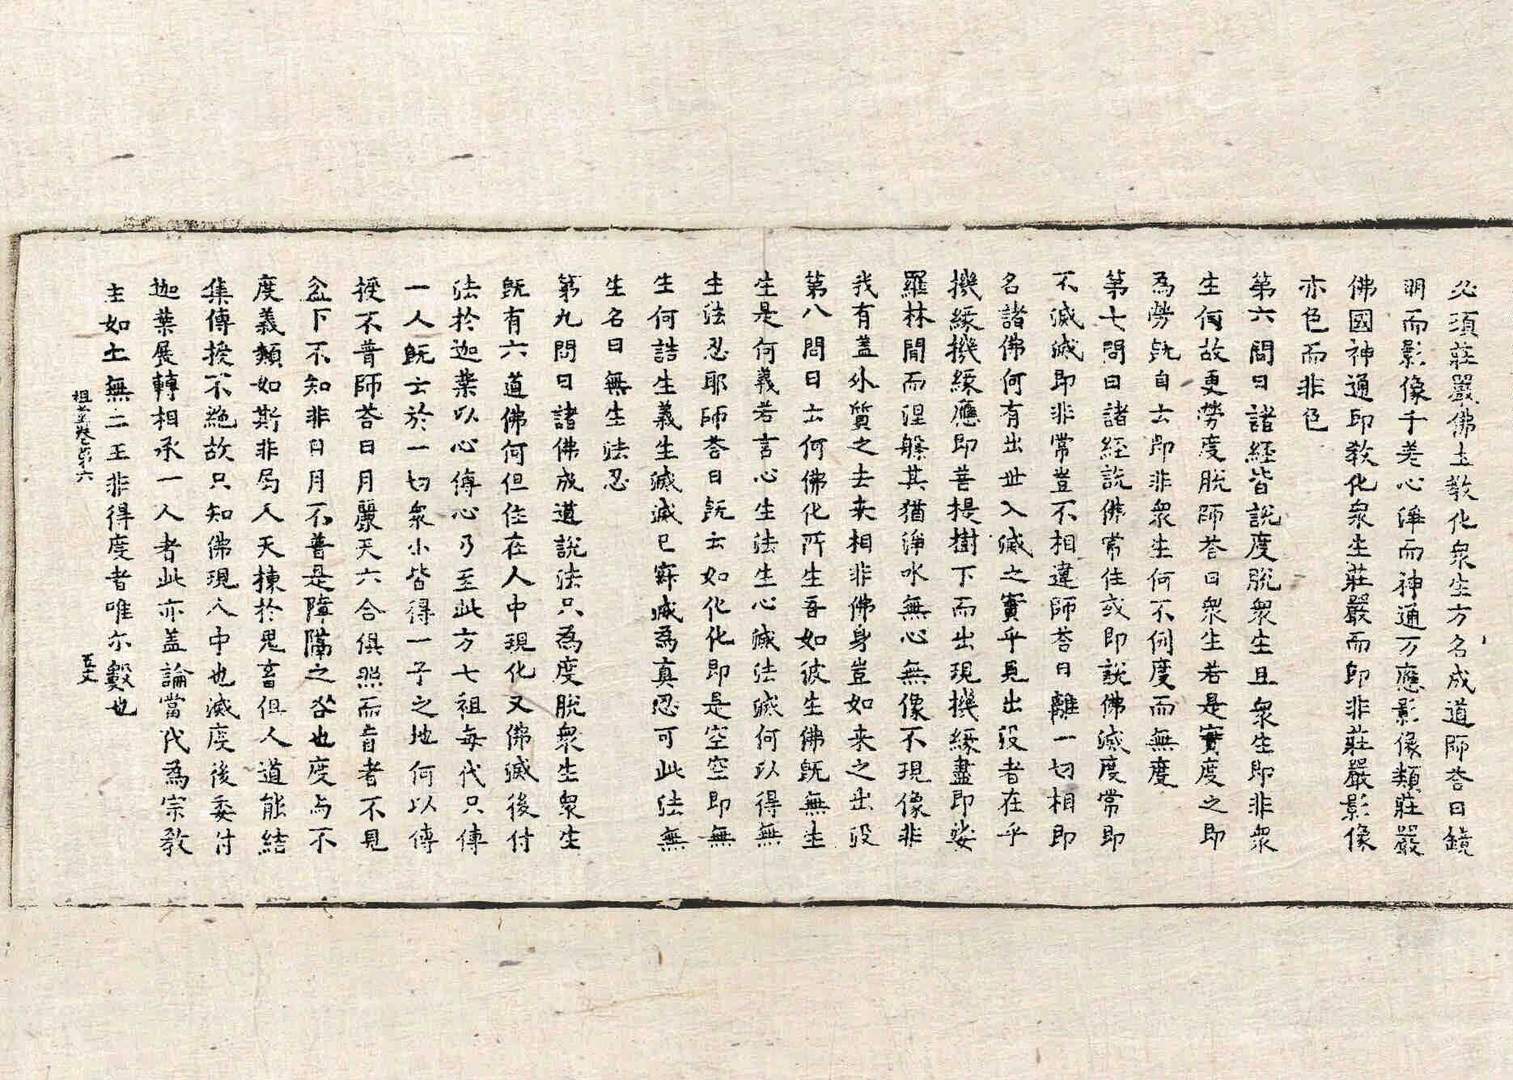 必須莊嚴佛土教化衆生方名成道師答曰鏡
明而影像千差心淨而神通万應影像類莊嚴
佛國神通即教化衆生莊嚴而即非莊嚴影像
亦色而非色
第六問曰諸經皆說度脫衆生且衆生即非衆
生何故更勞度脫師答曰衆生若是實度之即
為勞既自云即非衆生何不例度而無度
第七問曰諸經說佛常住或即說佛滅度常即
不滅滅即非常豈不相違師答曰離一切相即
名諸佛何有出世入滅之實乎見出没者在乎
機緣機緣應即菩提樹下而出現機緣盡即娑
羅林間而涅槃其猶淨水無心無像不現像非
我有盖外質之去来相非佛身豈如来之出没
第八問曰云何佛化所生吾如彼生佛既無生
生是何義若言心生法生心滅法滅何以得無
生法忍耶師答曰既云如化化即是空空即無
生何詰生義生滅滅已寂滅為真忍可此法無
生名曰無生法忍
第九問曰諸佛成道說法只為度脫衆生衆生
既有六道佛何但住在人中現化又佛滅後付
法於迦葉以心傳心乃至此方七祖每代只傳
一人既云於一切衆小皆得一子之地何以傳
授不普師答曰日月麗天六合俱照而盲者不見
盆下不知非日月不普是障隔之咎也度与不
度義類如斯非局人天揀於鬼畜但人道能結
集傳授不絶故只知佛現人中也滅度後委付
迦葉展轉相承一人者此亦盖論當代為宗教
主如土無二王非得度者唯尒數也
祖堂卷 第六 五丈